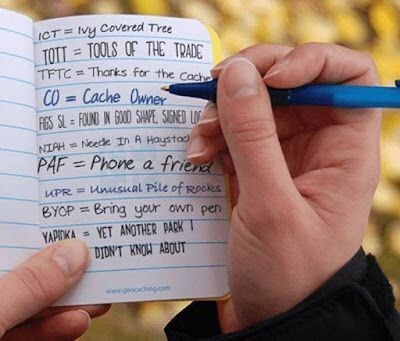 ICT = Ivy Covered Tree
TOTT = TOOLS OF THE TRADE
TFTC = Thanks for the Cache
CO = Cache Owner
FIGS SL = FOUND IN GOOD SHAPE, SIGNED LOG
NIAH = Needle In A Haystack
PAF = Phone a friend
UPR = Unusual Pile of Rocks
BYOP = Bring your own pen
YAPIDKA = YET ANOTHER PARK I
DIDN'T KNOW ABOUT
www.geocaching.com